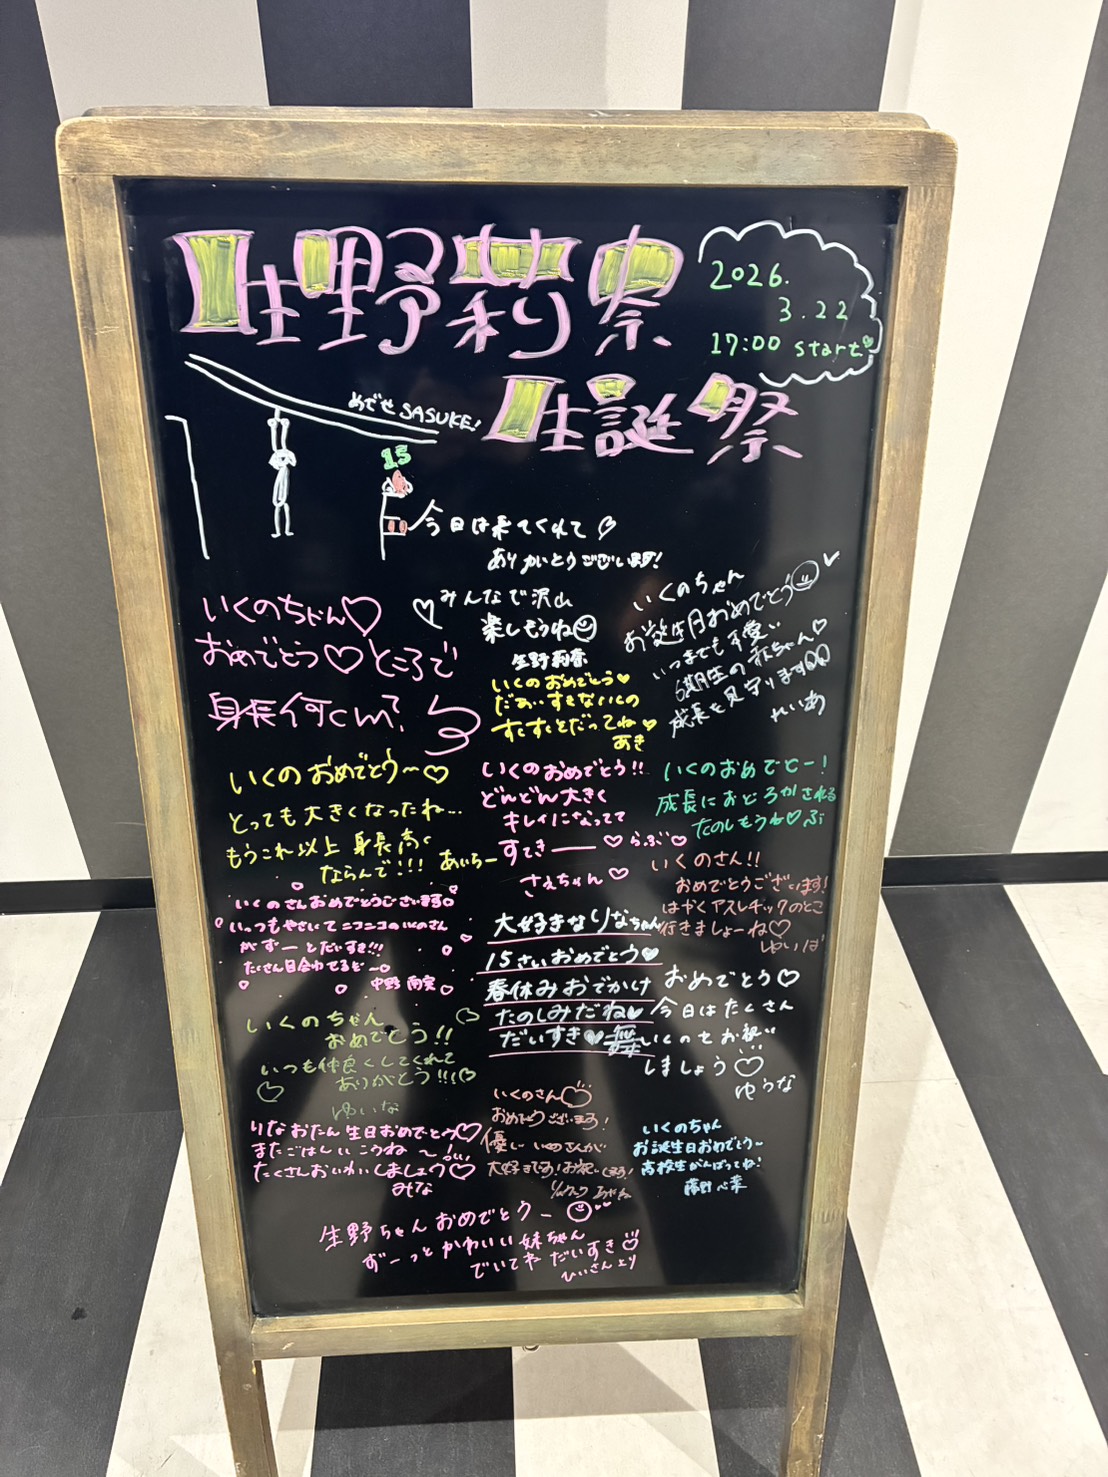 生野莉奈
生誕祭
2026.
3.22
17:00 start
めざせSASUKE!
15
今日は来てくれて♡
ありがとうございます!
みんなで沢山
楽しもうね
生野莉奈
いくのちゃん♡
おめでとう♡ところで
身長何cm?
いくのちゃん
お誕生日おめでとう
いつまでも可愛い
6期生の赤ちゃん♡
成長を見守ります
れいあ
いくのおめでとう♥
だぁいすきないくの
すくすくとそだってね♥
あき
いくのおめでとう〜♡
とっても大きくなったね…
もうこれ以上身長高く
ならんで!!! あいちー
いくのおめでとう!!
どんどん大きく
キレイになってて
すてき── ♡らぶ♡
さえちゃん♡
いくのおめでとー!
成長におどろかされる
たのしもうね♡ぶ
いくのさん!!
おめでとうございます!
はやくアスレチックのとこ
行きましょーね♡
ゆいは
いくのさんおめでとうございます
いっつもやさしくてニコニコのいくのさん
がずーーとだいすき!!!
たくさん目合わせるぞ〜
中野
大好きなりなちゃん
15さいおめでとう♥
春休みおでかけ
たのしみだね♥
だいすき♥舞
おめでとう♡
今日はたくさん
いくのをお祝い
しましょう♡
ゆうな
いくのちゃん
おめでとう!!
いつも仲良くしてくれて
ありがとう!!!♡
ゆいな
りなおたん生日おめでとう♡
またごはんいこうね〜!
たくさんおいわいしましょう♡
みな
いくのさん♡
おめでとうございます!
優しいいくのさんが
大好きです!お祝いします!
いくのちゃん
お誕生日おめでとう〜
高校生がんばってね!
生野ちゃんおめでとうー
ずーっとかわいい妹ちゃん
でいてね だいすき♡
ひいさんより